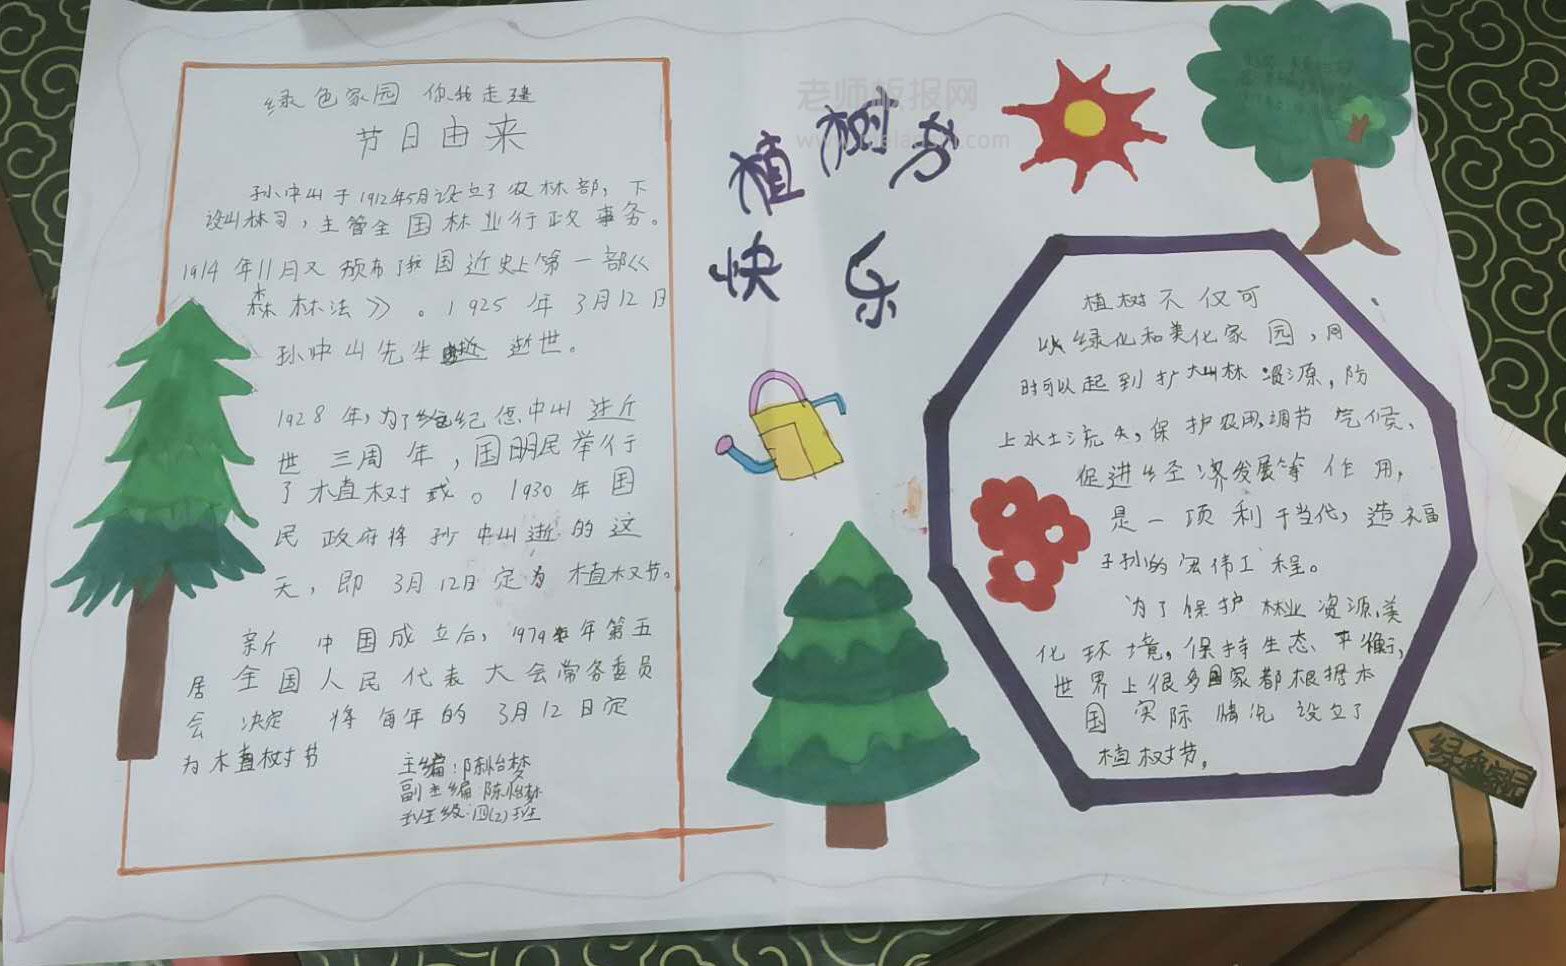 绿色家园 你我走进
节日由来
孙中山于1912年5月设立了农林部，下
设山林司，主管全国林业行政事务。
1914年11月又颁布了我国近史上第一部《
森林法》。1925年3月12日
孙中山先生逝世。
1928年，为了纪念中山逝
世三周年，国民举行
了植树式。1930年国
民政府将孙中山逝的这
天，即3月12日定为植树节。
新中国成立后，1979年第五
居全国人民代表大会常务委员
会决定将每年的3月12日定
为植树节
主编：陈怡梦
副主编 陈怡梦
班级：四(2)班
植树节
快乐
老师板报网
植树不仅可
以绿化和美化家园，同
时可以起到扩大山林资源，防
止水土流失，保护农田，调节气候、
促进经济发展等作用，
是一项利于当代，造福
子孙的宏伟工程。
为了保护林业资源，美
化环境，保持生态平衡，
世界上很多国家都根据本
国实际情况设立了
植树节。
绿色家园